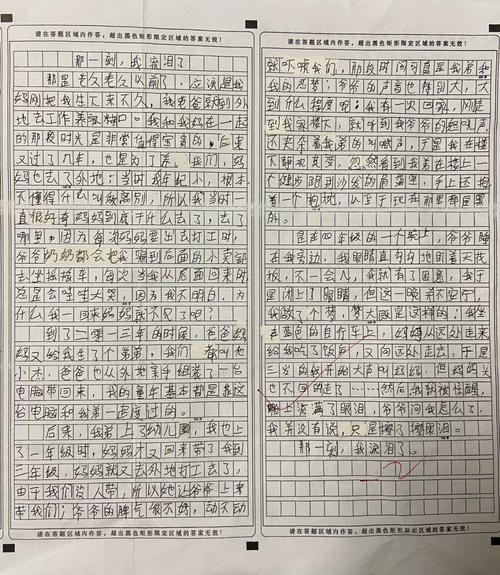 请在答题区域内作答，超出黑色矩形限定区域的答案无效！
那一刻，我流泪了
那是老久老久以前了，应该是我
妈刚把我生下来不久，我老爸就到外
地去工作养家糊口。我和我妈在一起
的那段时光是非常值得宝贵的。后来
又过了几年，也是为了养我们，妈
妈也去了外地；当时我年纪小，根本
不懂得什么叫做离别，所以我当时一
直很好奇妈妈到底干什么去了，去了
哪里。因为每次妈妈要出去打工时，
爷爷奶奶都会把我骗到后面的小卖部
去坐摇摇车，每次当我从后面回来时
总是会哇哇大哭，因为我不明白，为
什么我一回来妈妈就不见了呢？
到了二零一三年的时候，爸爸妈
妈又给我生了个弟弟，我们都叫他
小杰，爸爸也从外地拿手组装了一台
电脑带回来，我的童年基本都是靠这
台电脑和我弟一起度过的。
后来，我弟上了幼儿园，我也上
了一年级时，妈妈才又回来带了我到
三年级，妈妈就又去外地打工去了，
由于我们没人带，所以她让爷爷上来
带我们；爷爷的脾气很不好，动不动
请在答题区域内作答，超出黑色矩形限定区域的答案无效！
请在答题区域内作答，超出黑色矩形限定区域的答案无效！
就吓唬我们，那段时间可真是我弟和
我的恶梦；爷爷的声音也特别大，大
到什么程度呢？我有一次回家，刚走
到我家楼下，就听到我爷爷的怒吼声，
还夹杂着我弟的叫喊声，于是我在楼
下静观其变，忽然看到我弟在楼上一
个健步跑到沙发的角落里，手上还抱
着一个抱枕，以至于现在那里都是黑
的。
是在四年级的一个晚上，爷爷睡
在我旁边，我一眼直勾勾地盯着天花
板，不一会儿，我就有了困意，我于
是闭上了眼睛，但这一晚并不安宁，
我做了个梦，梦大概是这样的：我坐
在蓝色的自行车上，妈妈从远处走来
给我吃了饭后，又向远处走去，于是
三岁的我开始大声叫妈妈，但妈妈头
也不回的走了……然后我就被惊醒，
脸上流满了眼泪，爷爷问我怎么了，
我并没有说，只是擦了擦眼泪。
那一刻，我流泪了。
请在答题区域内作答，超出黑色矩形限定区域的答案无效！